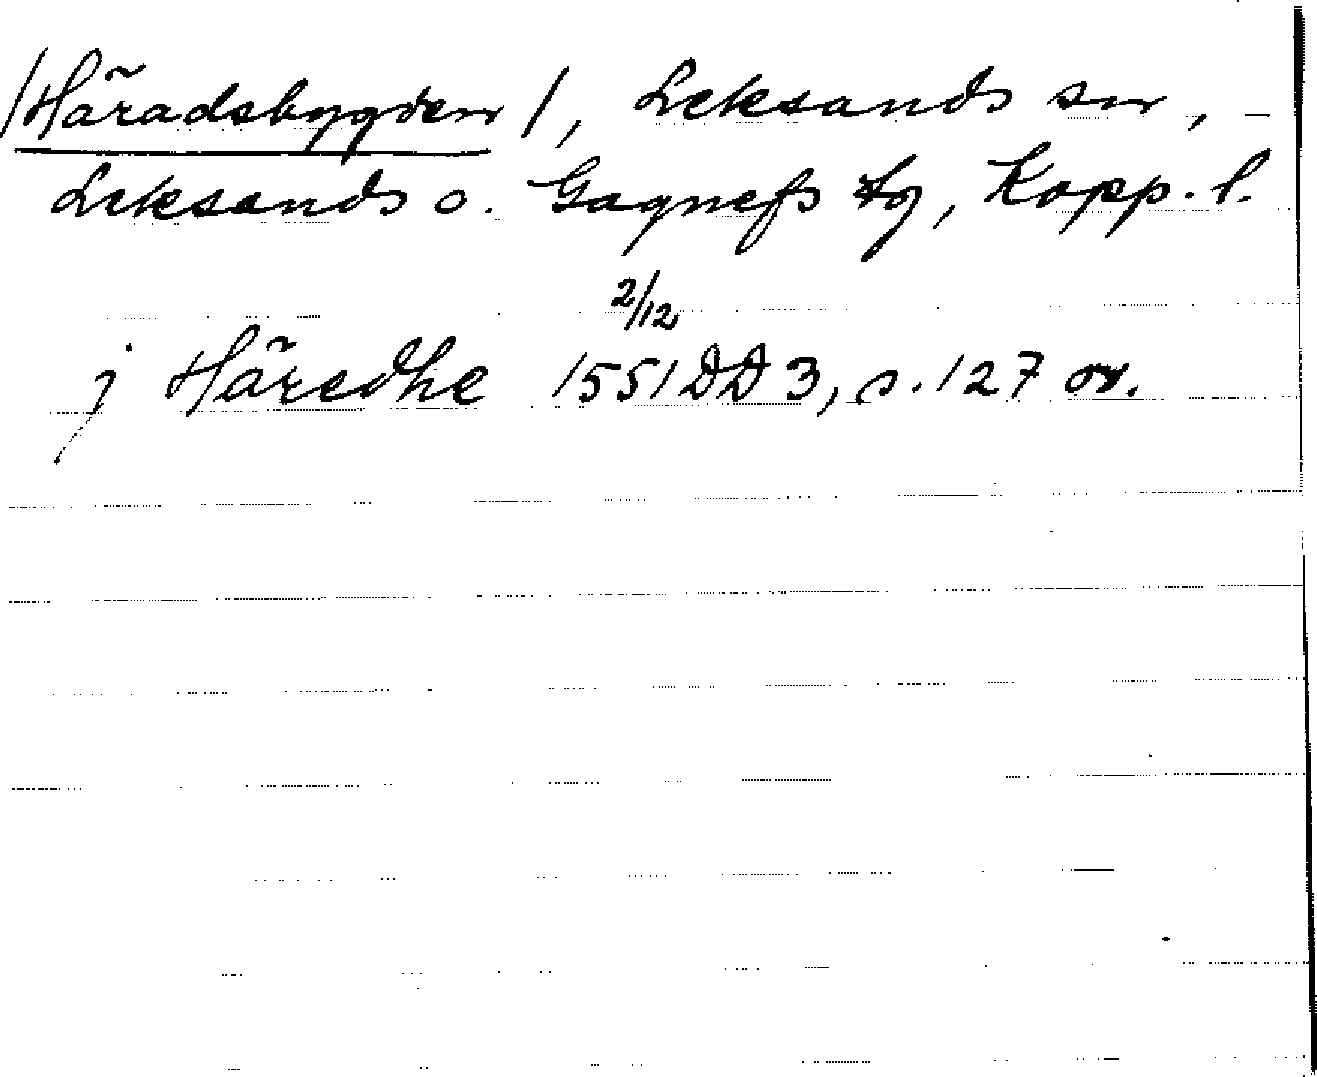 /Häradsbygden/, Leksands sn,
Leksands o. Gagnefs tg, Kopp. l.
2/12
j Häredhe 1551 DD 3, s. 127 or.